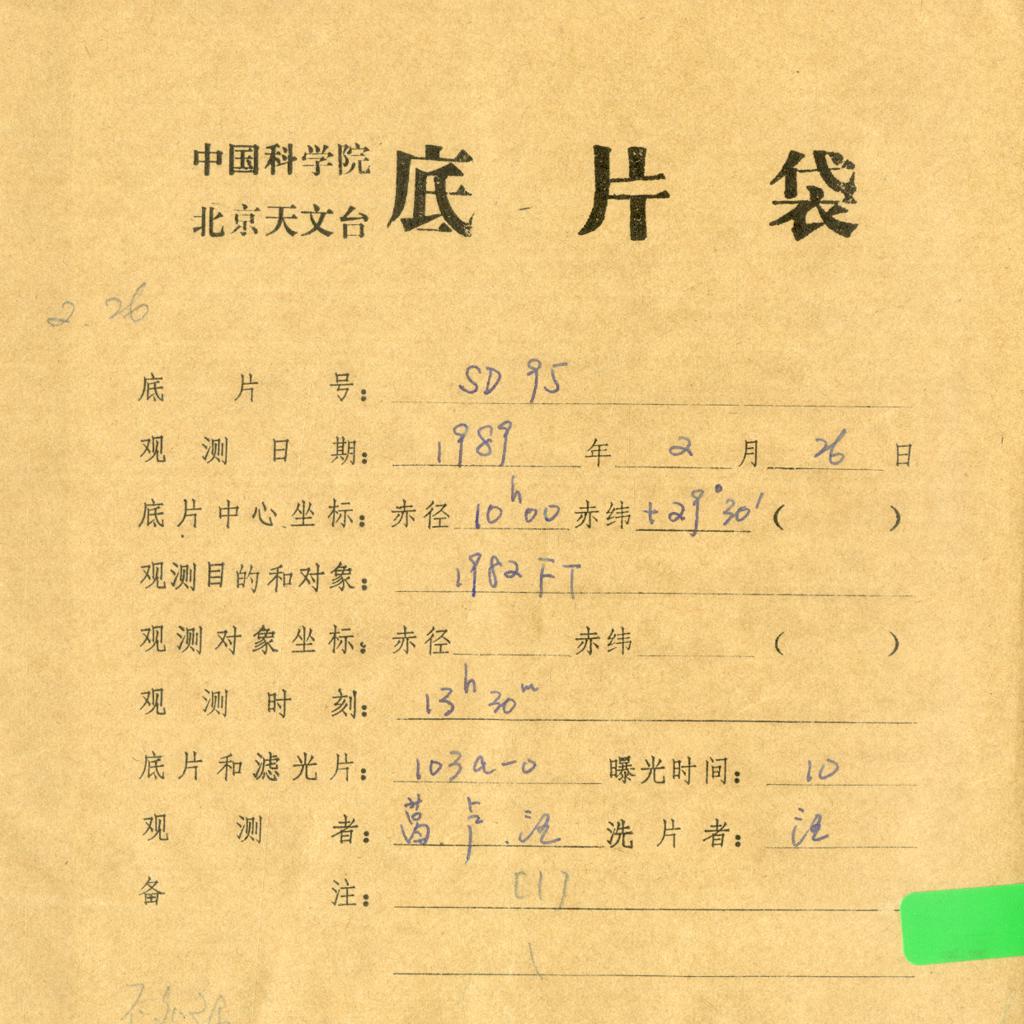 中国科学院
北京天文台
底片袋
2.26
底片号: SD 95
观测日期: 1989年2月26日
底片中心坐标: 赤径 10ʰ00 赤纬 +29°30′ ( )
观测目的和对象: 1982 FT
观测对象坐标: 赤径 赤纬 ( )
观测时刻: 13ʰ30ᵐ
底片和滤光片: 103a-0 曝光时间: 10
观测者: 卢.汪 洗片者: 汪
备注: [1]